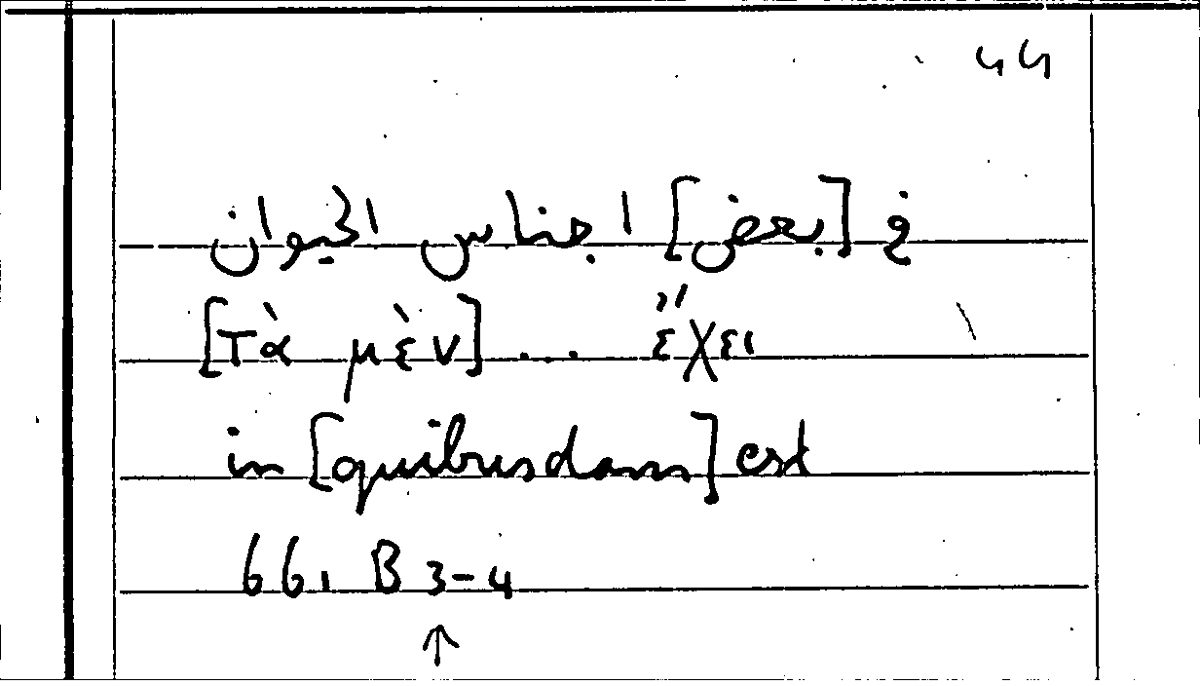 44
في [بعض] اجناس الحيوان
[τὰ μὲν] ... ἔχει
in [quibusdam] est
661 B 3-4
↑